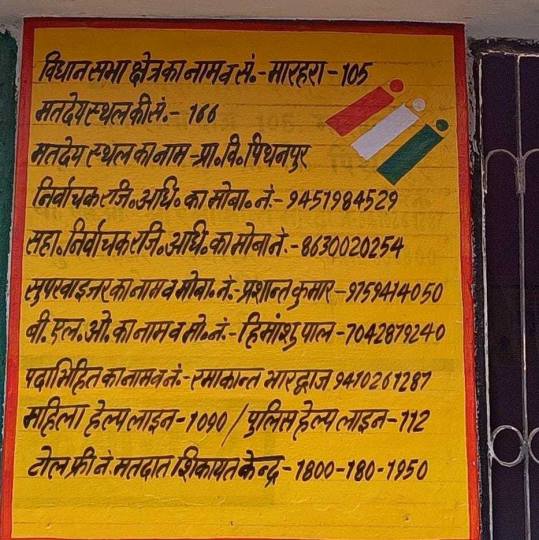 विधान सभा क्षेत्र का नाम व सं.- मारहरा - 105
मतदेय स्थल की सं.- 166
मतदेय स्थल का नाम - प्रा.वि. पिथनपुर
निर्वाचक रजि. अधि. का मोबा. नं.- 9451984529
सहा. निर्वाचक रजि. अधि. का मोबा नं.- 8630020254
सुपरवाइजर का नाम व मोबा. नं.- प्रशान्त कुमार - 9759414050
बी. एल. ओ. का नाम व मो. नं.- हिमांशु पाल - 7042879240
पदाभिहित का नाम व नं.- रमाकान्त भारद्वाज 9410261287
महिला हेल्प लाइन - 1090 / पुलिस हेल्प लाइन - 112
टोल फ्री नं. मतदात शिकायत केन्द्र - 1800-180-1950